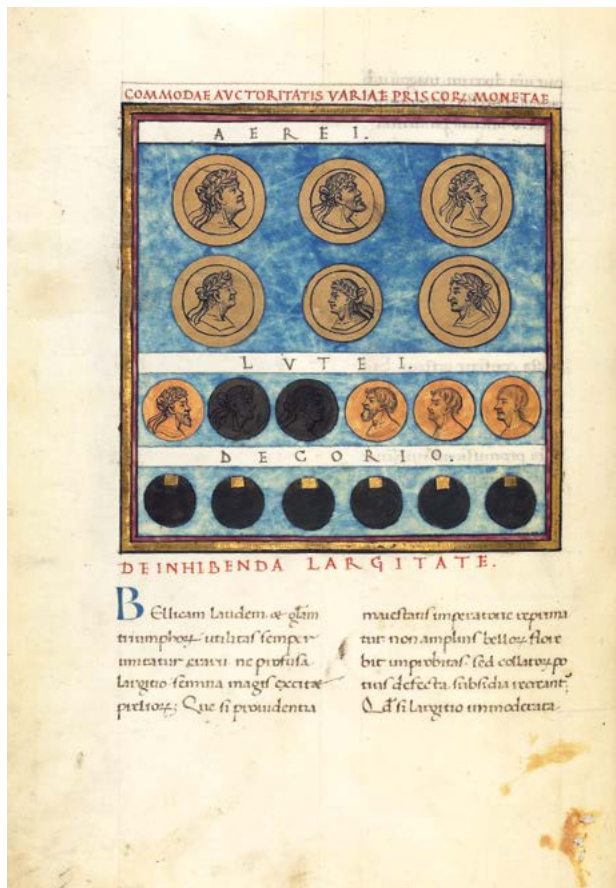 COMMODAE AVCTORITATIS VARIAE PRISCORꝝ MONETAE
A E R E I .
L V T E I .
D E C O R I O .
DEINHIBENDA LARGITATE.
BEllicam laudem & gl̃am
triumphoꝝ utilitas semper
imitatur erarii ne profusa
largitio semina magis excitet
prelioꝝ; Que si prouidentia
maiestatis imperatorie reprima
tur non amplius belloꝝ flore
bit improbitas. sed collatoꝝ po
tius defecta subsidia recreant᷑
Qd̃ si largitio immoderata